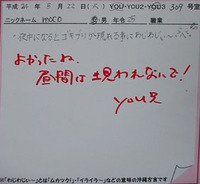 平成21年5月22日(火) YOU・YOU2・YOU3 309号室
ニックネーム moco 年令25 職業
夜中になるとゴキブリが現れる事にわじわじぃ〜
よかったね、
昼間は現われないで!
you兄
※「わじわじぃ〜」とは「ムカつク!」・「イライラ〜」などの意味の沖縄方言です